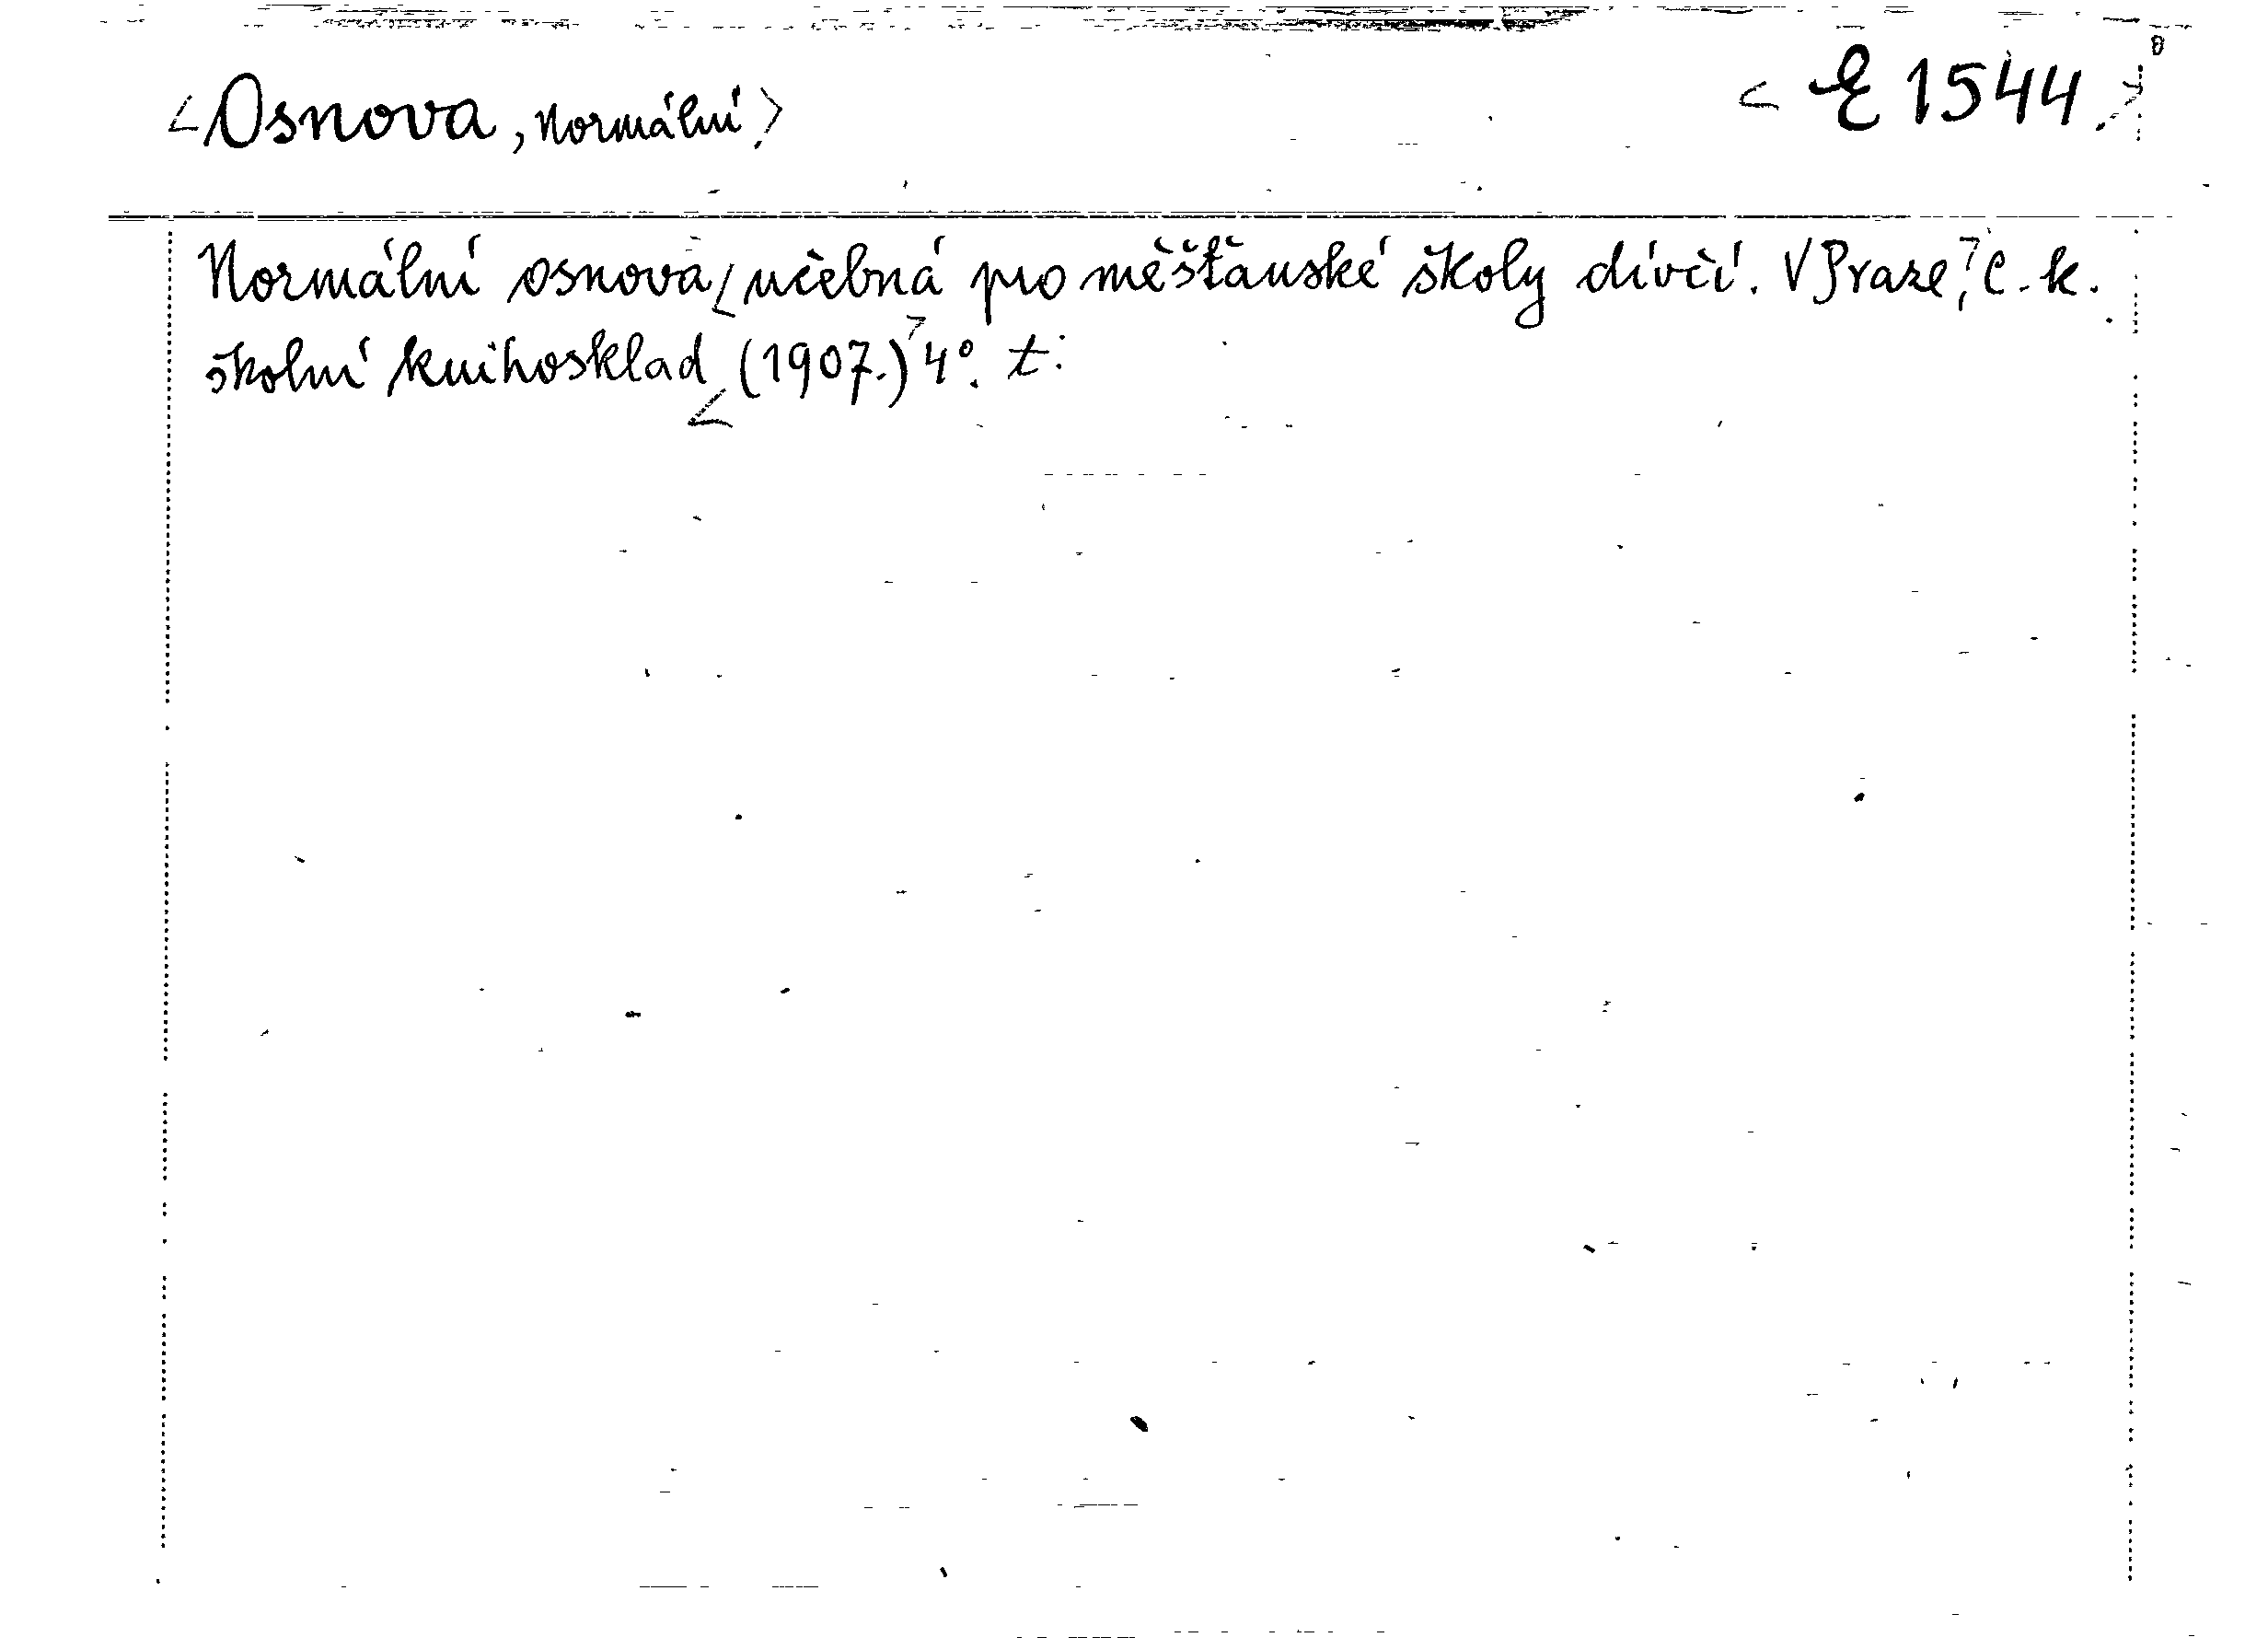 <Osnova, normální> <E 1544.>
Normální osnova <učebná pro měšťanské školy dívčí. V Praze,> C. k.
školní knihosklad <(1907.)> 4°. t: